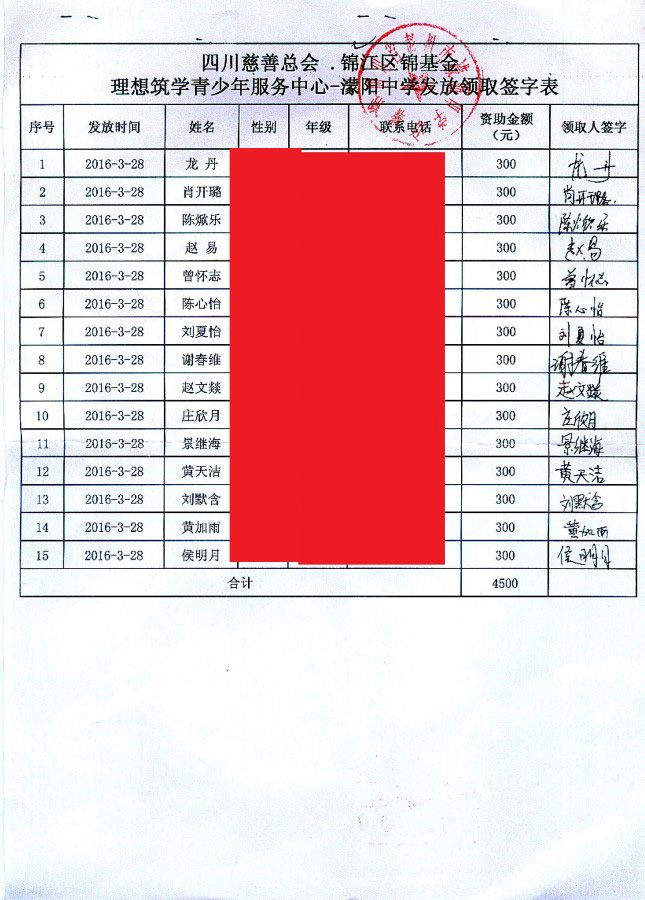 四川慈善总会 . 锦江区锦基金
理想筑学青少年服务中心-濛阳中学发放领取签字表
序号 发放时间 姓名 性别 年级 联系电话 资助金额（元） 领取人签字
1 2016-3-28 龙 丹 300 龙丹
2 2016-3-28 肖开璐 300 肖开璐
3 2016-3-28 陈焮乐 300 陈焮乐
4 2016-3-28 赵 易 300 赵易
5 2016-3-28 曾怀志 300 曾怀志
6 2016-3-28 陈心怡 300 陈心怡
7 2016-3-28 刘夏怡 300 刘夏怡
8 2016-3-28 谢春维 300 谢春维
9 2016-3-28 赵文燚 300 赵文燚
10 2016-3-28 庄欣月 300 庄欣月
11 2016-3-28 景继海 300 景继海
12 2016-3-28 黄天洁 300 黄天洁
13 2016-3-28 刘默含 300 刘默含
14 2016-3-28 黄加雨 300 黄加雨
15 2016-3-28 侯明月 300 侯明月
合计 4500